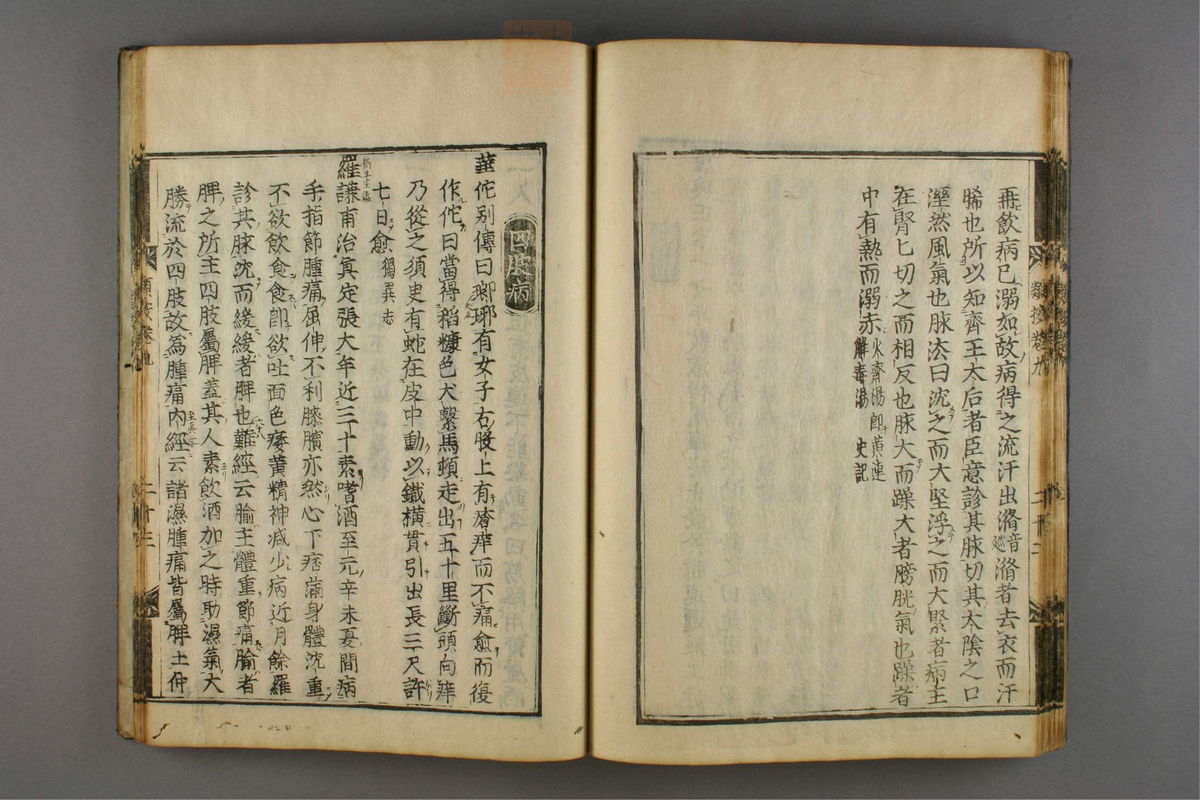 再飲病已溺如故病得之流汗出㵌音巡㵌者去衣而汗
晞也所以知齊王太后者臣意診其脉切其太陰之口
溼然風氣也脉法曰沈之而大堅浮之而大緊者病主
在腎腎切之而相反也脉大而躁大者膀胱氣也躁者
中有熱而溺赤火齊湯即黄連
解毒湯 史記
四肢病
華佗别傳曰瑯琊有女子右股上有瘡痒而不痛愈而復
作佗曰當得稻糠色犬繫馬頓走出五十里斷頭向痒
乃從之須臾有蛇在皮中動以鐵横貫引出長三尺許
七日愈獨異志
羅謙甫治眞定張大年近三十素嗜酒至元辛未夏間病
手指節腫痛屈伸不利膝臏亦然心下痞滿身體沈重
不欲飲食食即欲吐面色痿黄精神减少病近月餘羅
診其脉沈而緩緩者脾也難經云腧主體重節痛腧者
脾之所主四肢屬脾蓋其人素飲酒加之時助濕氣大
勝流於四肢故為腫痛内經云諸濕腫痛皆屬脾土仲